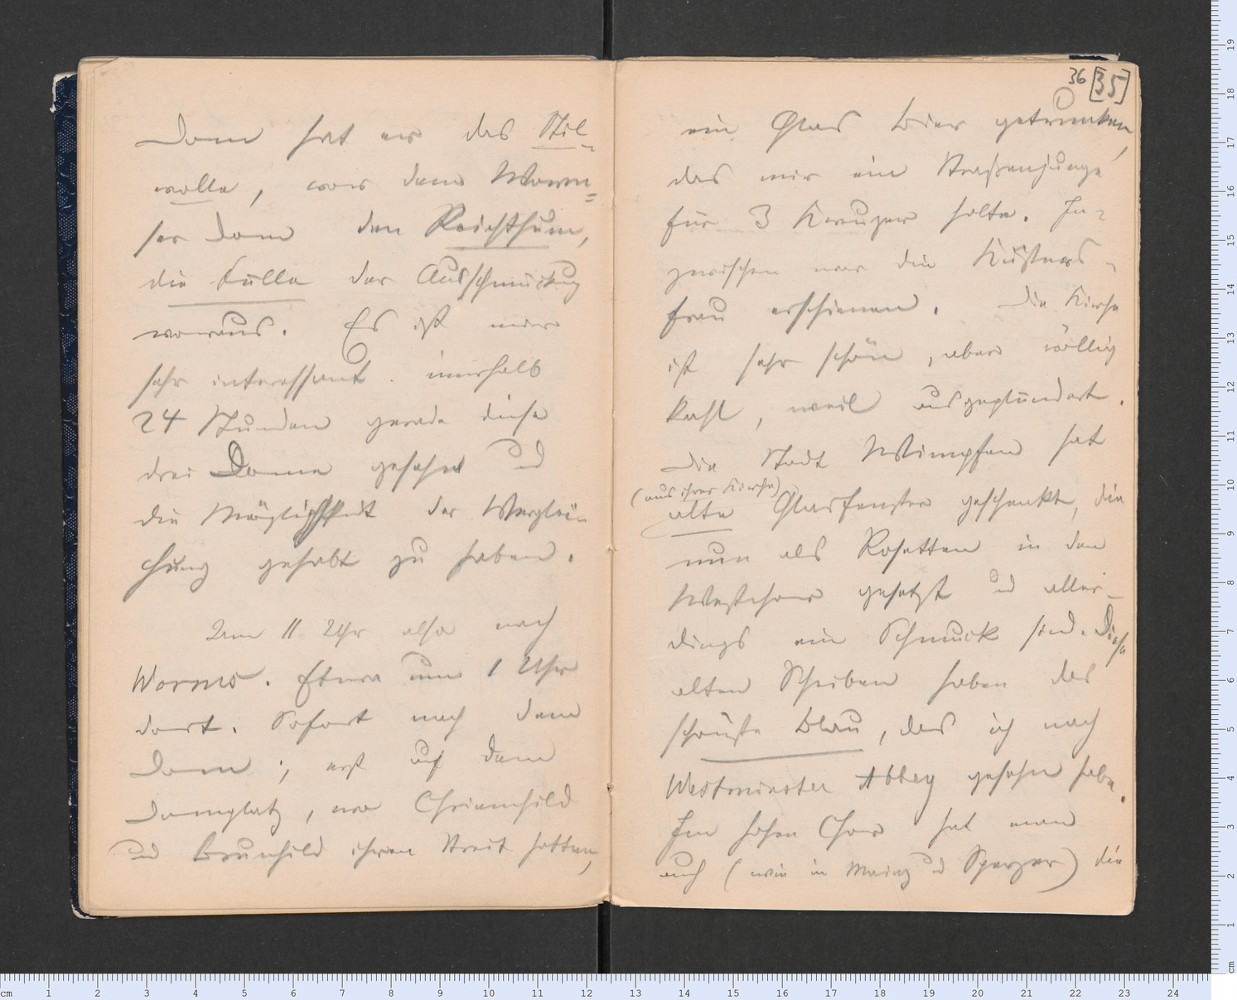 Dom hat er das Stil-
volle, was dem Worm-
ser Dom den Reichthum,
die Fülle der Ausschmückung
voraus. Es ist mir
sehr interessant innerhalb
24 Stunden gerade diese
drei Dome gesehn und
die Möglichkeit der Verglei-
chung gehabt zu haben.
Um 11 Uhr also nach
Worms. Etwa um 1 Uhr
dort. Sofort nach dem
Dom; erst auf dem
Domplatz, wo Chriemhild
und Brunhild ihren Streit hatten,
36 [35]
ein Glas Bier getrunken,
das mir ein Straßenjunge
für 3 Kreuzer holte. In-
zwischen war die Küsters-
frau erschienen. Die Kirche
ist sehr schön, aber völlig
kahl, weil ausgeplündert.
Die Stadt Wimpfen hat
(aus ihrer Kirche)
alte Glasfenster geschenkt, die
nun als Rosetten in den
Westchor gesetzt und aller-
dings ein Schmuck sind. Diese
alten Scheiben haben das
schönste Blau, das ich nach
Westminster Abbey gesehn habe.
Im hohen Chor hat man
auch (wie in Mainz und Speyer) die